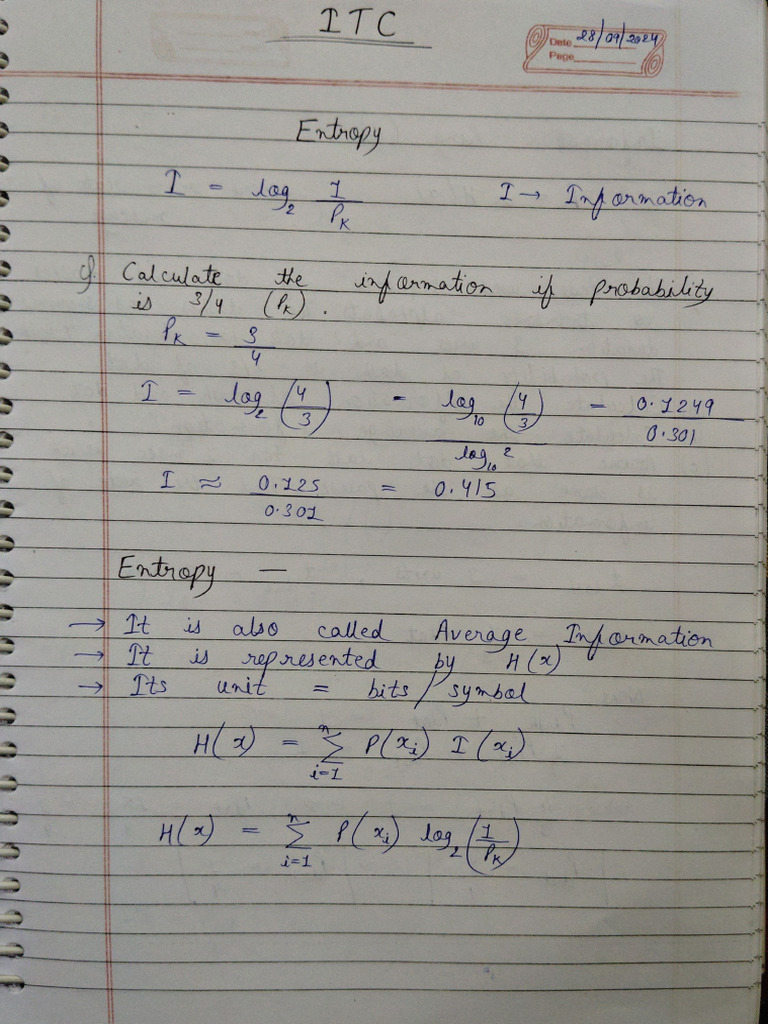 ITC
Date 28/09/2024
Page
Entropy
I = log₂ 1/Pₖ    I → Information
Q. Calculate the information if probability
is 3/4 (Pₖ).
Pₖ = 3/4
I = log₂ (4/3) = log₁₀ (4/3) / log₁₀ 2 = 0.1249 / 0.301
I ≈ 0.125 / 0.301 = 0.415
Entropy —
→ It is also called Average Information
→ It is represented by H(x)
→ Its unit = bits/symbol
H(x) = Σᵢ₌₁ⁿ P(xᵢ) I(xᵢ)
H(x) = Σᵢ₌₁ⁿ P(xᵢ) log₂ (1/Pₖ)